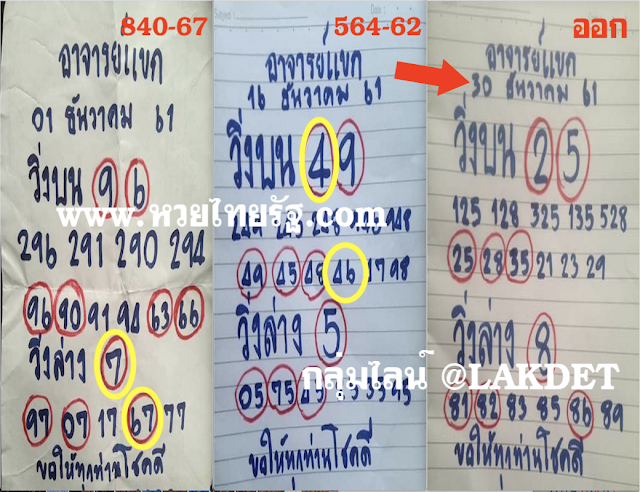 840-67
อาจารย์แขก
01 ธันวาคม 61
วิ่งบน 9 6
296 291 290 294
96 90 91 94 63 66
วิ่งล่าง 7
97 07 17 67 77
ขอให้ทุกท่านโชคดี
564-62
อาจารย์แขก
16 ธันวาคม 61
วิ่งบน 4 9
49 45 48 46 47 98
วิ่งล่าง 5
05 75 45
ขอให้ทุกท่านโชคดี
ออก
อาจารย์แขก
30 ธันวาคม 61
วิ่งบน 2 5
125 128 325 135 528
25 28 35 21 23 29
วิ่งล่าง 8
81 82 83 85 86 89
ขอให้ทุกท่านโชคดี
www.หวยไทยรัฐ.com
กลุ่มไลน์ @LAKDET